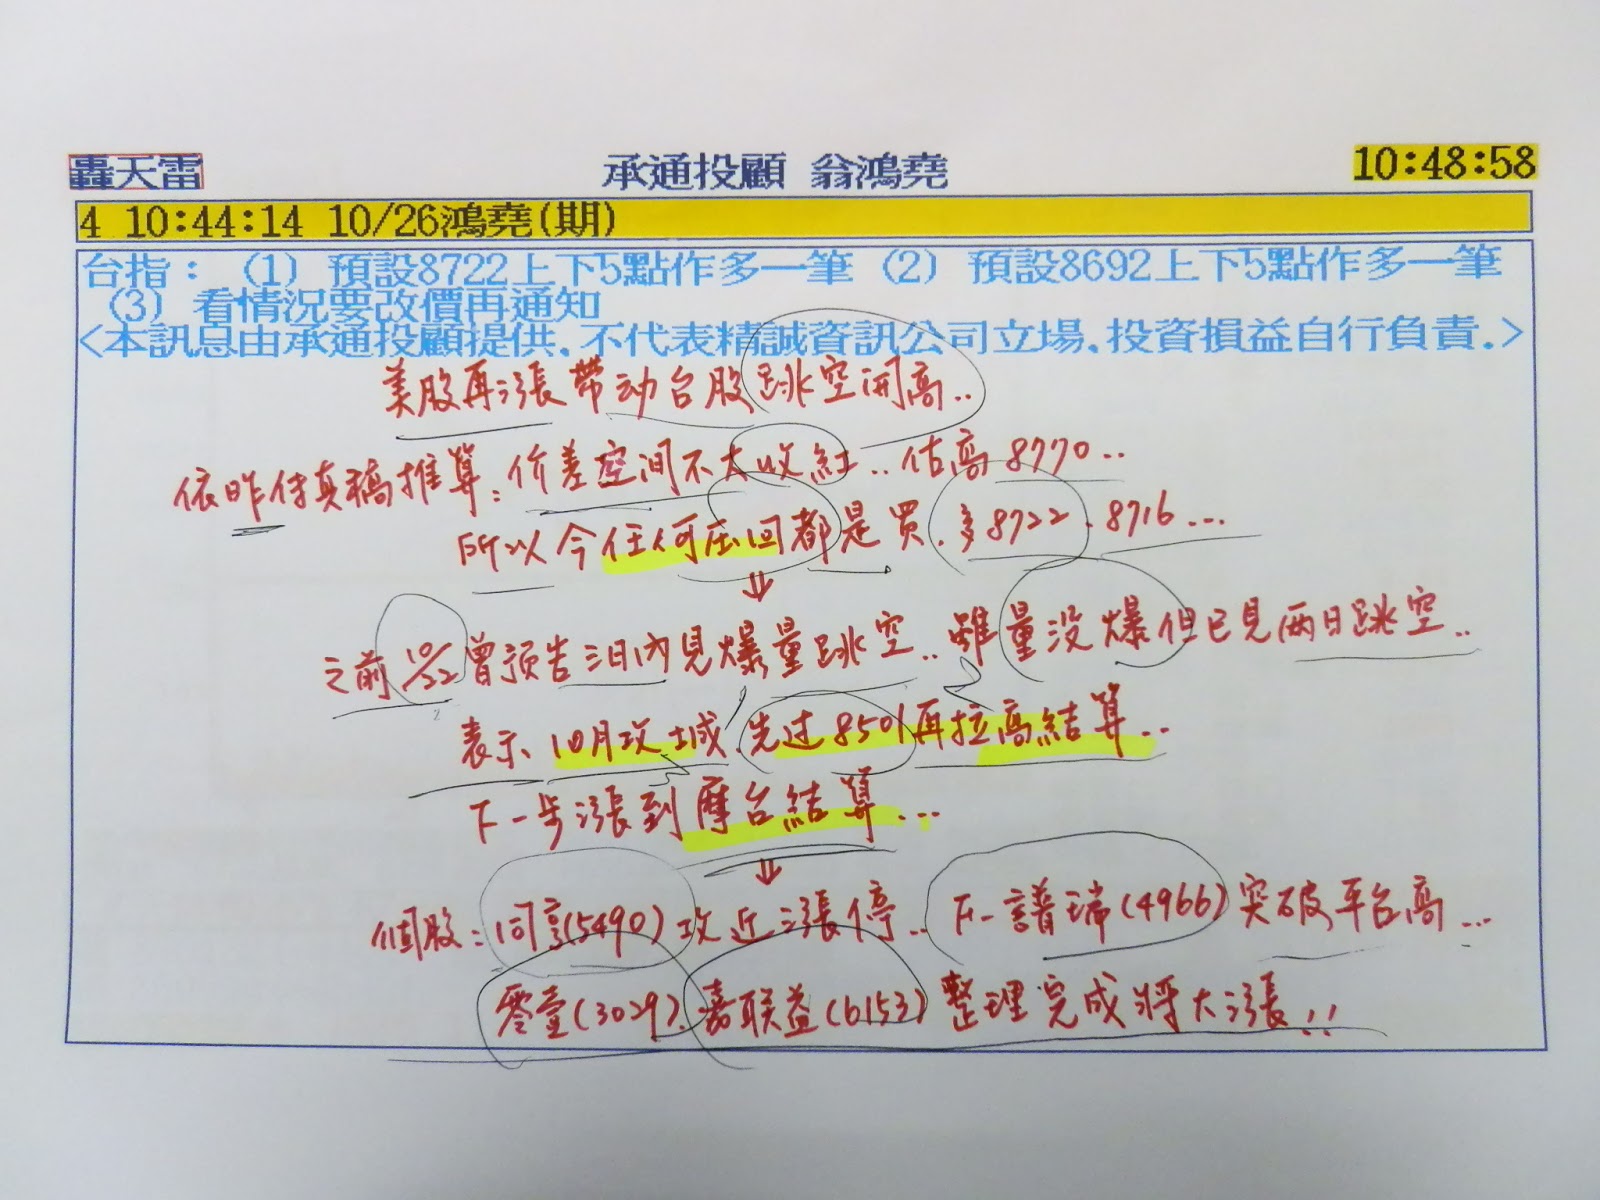 轟天雷 承通投顧 翁鴻堯 10:48:58
4 10:44:14 10/26鴻堯(期)
台指：(1) 預設8722上下5點作多一筆 (2) 預設8692上下5點作多一筆
(3) 看情況要改價再通知
<本訊息由承通投顧提供.不代表精誠資訊公司立場.投資損益自行負責.>
美股再漲帶动台股跳空開高..
依昨传真稿推算:价差空间不大收紅..估高8770..
所以今任何压回都是買.多8722、8716...
之前10/22曾预告三日內見爆量跳空..雖量没爆但已見兩日跳空..
表示10月攻城.先过8501再拉高結算..
下一步漲到摩台結算...
個股:同亨(5490)攻近漲停..下一譜瑞(4966)突破平台高...
零壹(3029).嘉联益(6153)整理完成將大漲!!